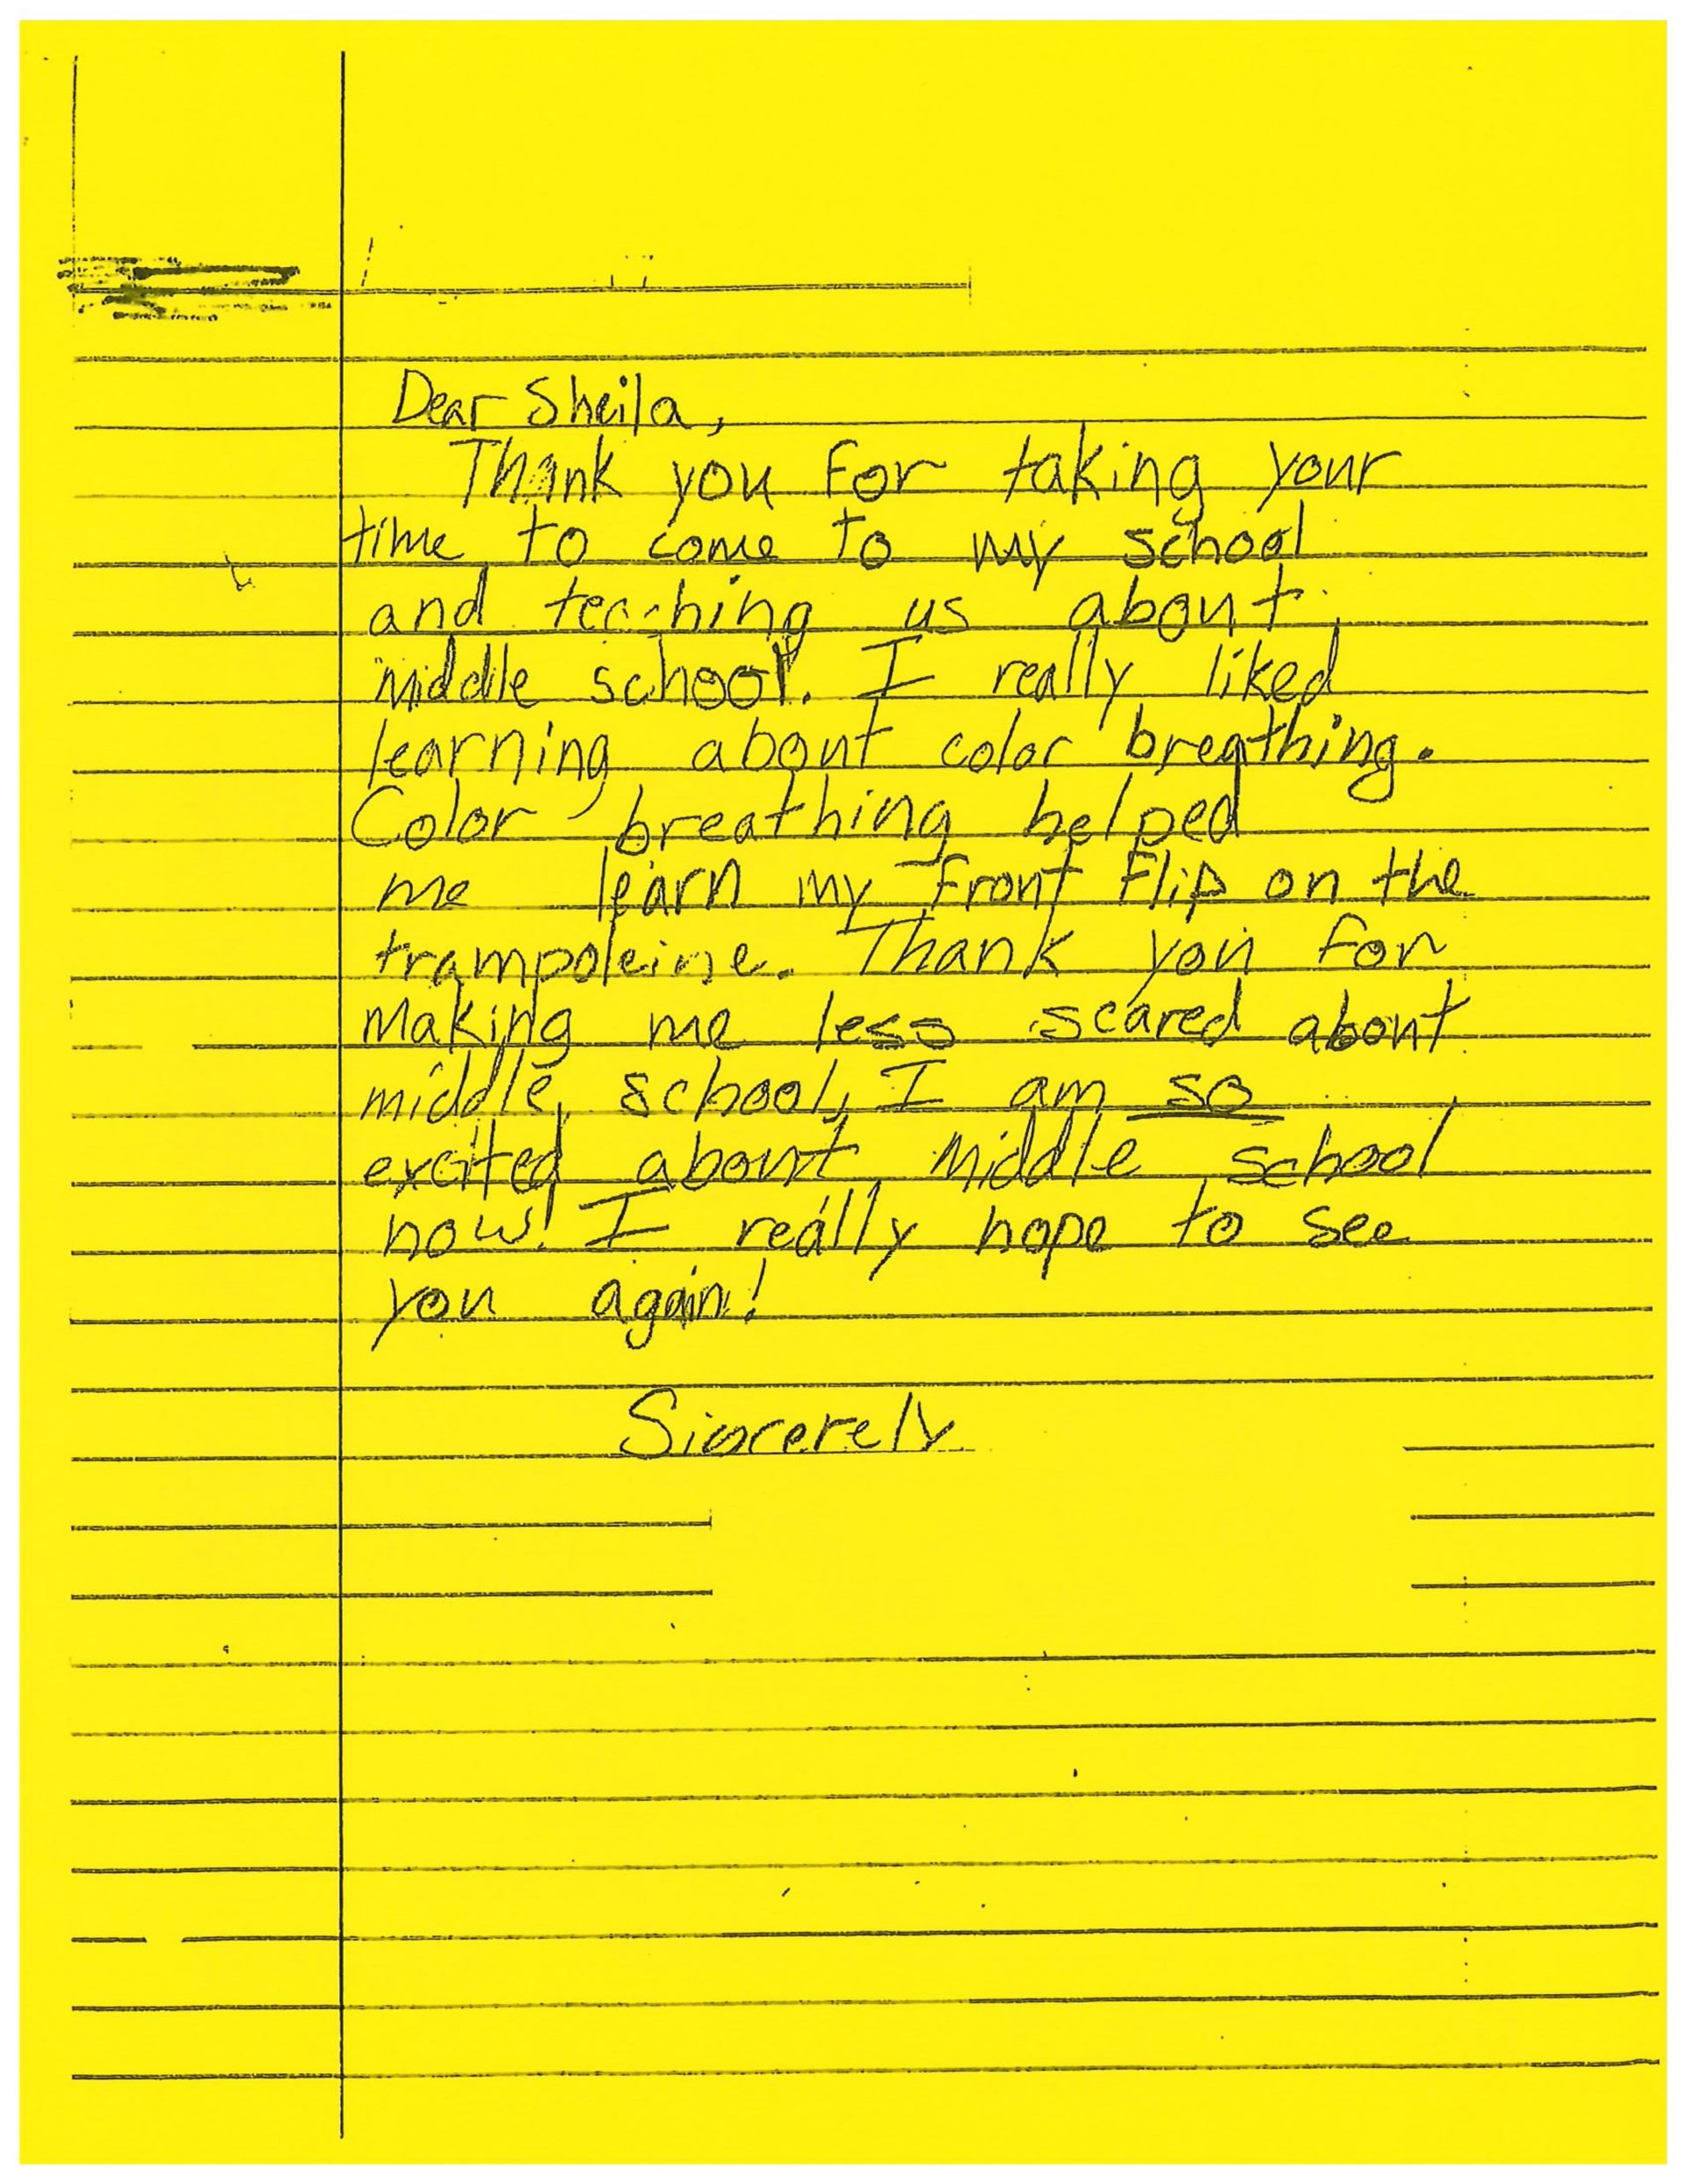 Dear Sheila,
Thank you for taking your
time to come to my school
and teaching us about
middle school. I really liked
learning about color breathing.
Color breathing helped
me learn my front flip on the
trampoleine. Thank you for
making me less scared about
middle school, I am so
excited about middle school
now! I really hope to see
you again!
Sincerely